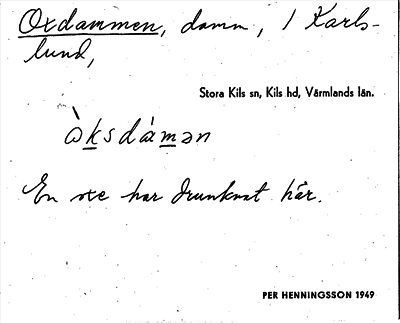 Oxdammen, damm, 1 Karls-
lund,
Stora Kils sn, Kils hd, Värmlands län.
ò̀ksdámən
En oxe har drunknat här.
PER HENNINGSSON 1949